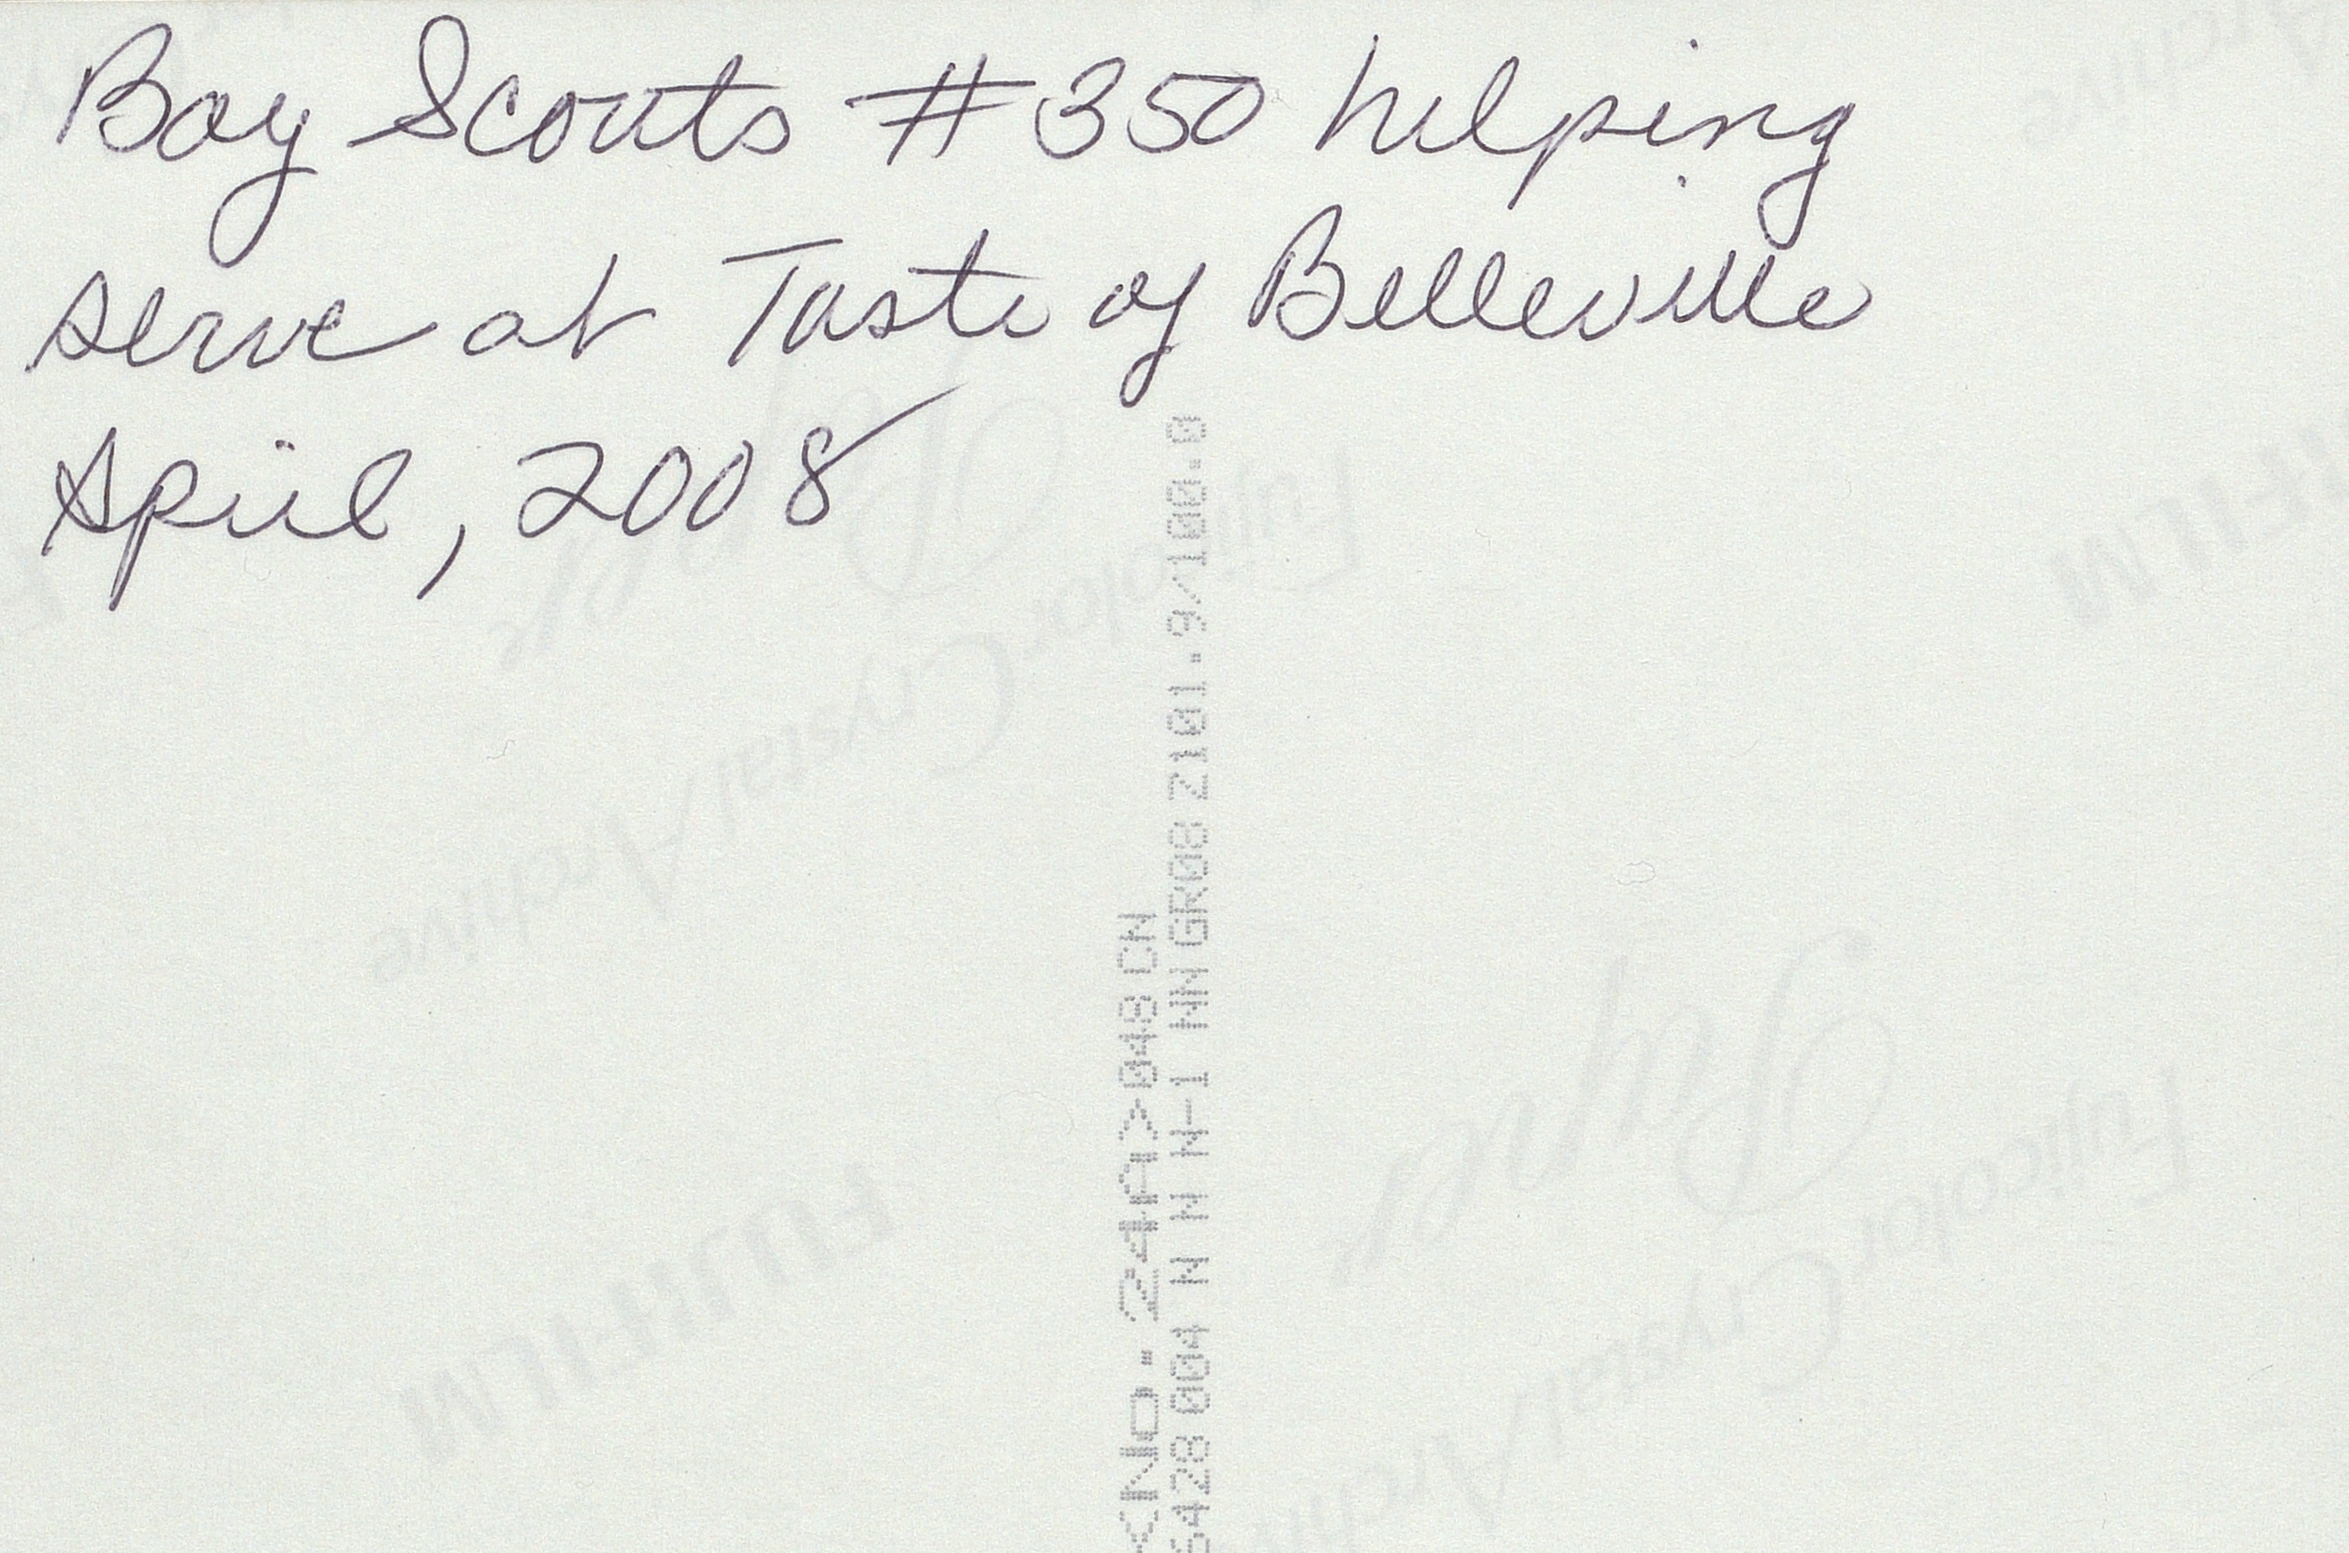 Boy Scouts #350 helping
serve at Taste of Belleville
April, 2008
<No. 24A>048 CN
6428 004 N N N-1 NN GR08 2101.9/100.0
Fujicolor
Crystal Archive
FUJIFILM
Fujicolor
Crystal Archive
FUJIFILM
Archive